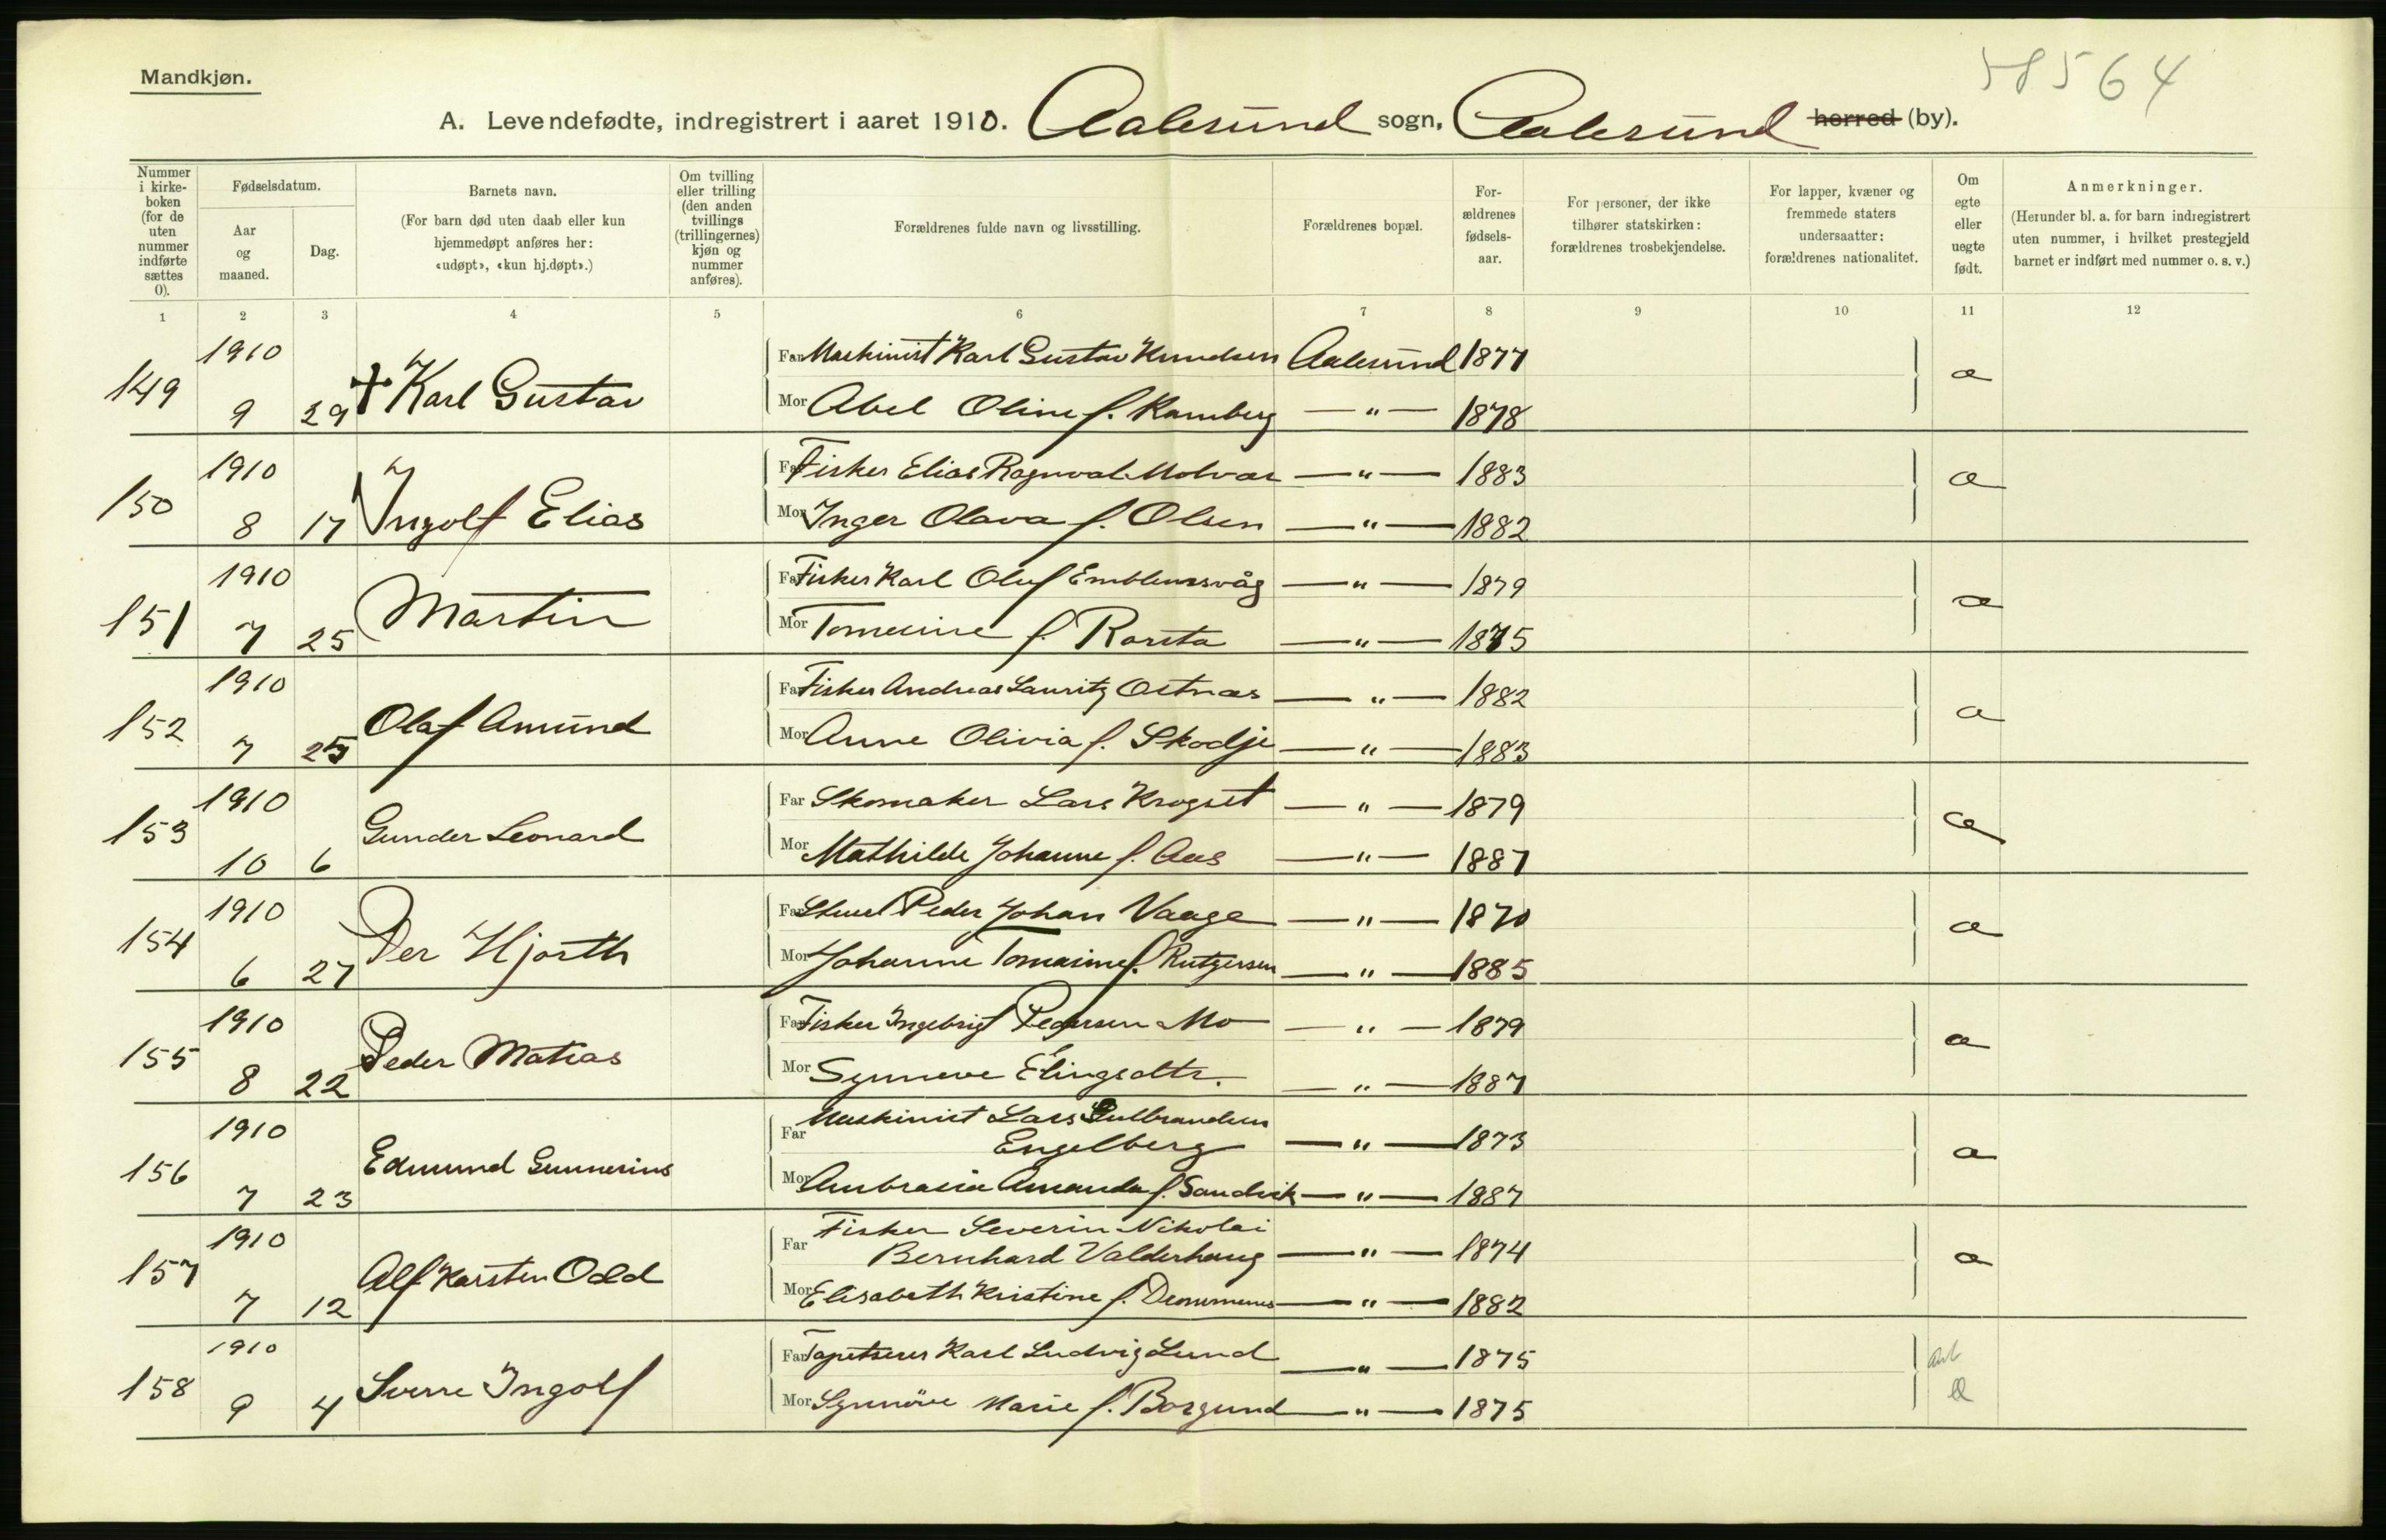 58564
Mandkjøn.
A. Levendefødte, indregistrert i aaret 1910. Aalesund sogn, Aalesund herred (by).
Nummer i kirkeboken (for de uten nummer indførte sættes 0).
Fødselsdatum.
Aar og maaned.
Dag.
Barnets navn.
(For barn død uten daab eller kun hjemmedøpt anføres her: «udøpt», «kun hj.døpt».)
Om tvilling eller trilling (den anden tvillings (trillingernes) kjøn og nummer anføres).
Forældrenes fulde navn og livsstilling.
Forældrenes bopæl.
Forældrenes fødselsaar.
For personer, der ikke tilhører statskirken: forældrenes trosbekjendelse.
For lapper, kvæner og fremmede staters undersaatter: forældrenes nationalitet.
Om egte eller uegte født.
Anmerkninger.
(Herunder bl. a. for barn indregistrert uten nummer, i hvilket prestegjeld barnet er indført med nummer o. s. v.)
1 2 3 4 5 6 7 8 9 10 11 12
149 1910 9 29 + Karl Gustav
Far Maskinist Karl Gustav Knudsen Aalesund 1877
Mor Abel Oline f. Ramberg — " — 1878
a
150 1910 8 17 Ingolf Elias
Far Fisker Elias Ragnvald Molvær — " — 1883
Mor Inger Olava f. Olsen — " — 1882
a
151 1910 7 25 Martin
Far Fisker Karl Oluf Emblemsvåg — " — 1879
Mor Tomine f. Rørsta — " — 1875
a
152 1910 7 25 Olaf Amund
Far Fisker Andreas Lauritz Ostnæs — " — 1882
Mor Anne Olivia f. Skodje — " — 1883
a
153 1910 10 6 Gunder Leonard
Far Skomaker Lars Krogset — " — 1879
Mor Mathilde Johanne f. Aas — " — 1887
a
154 1910 6 27 Per Hjorth
Far Peder Johan Vaage — " — 1870
Mor Johanne Tomasine f. Rutgersen — " — 1885
a
155 1910 8 22 Peder Matias
Far Fisker Ingebrigt Pedersen Mo — " — 1879
Mor Synneve Elingsdtr. — " — 1887
a
156 1910 7 23 Edmund Gunnerius
Far Maskinist Lars Gulbrandsen
Engelberg — " — 1873
Mor Ambrosia Amanda f. Sandvik — " — 1887
a
157 1910 7 12 Alf Karsten Odd
Far Fisker Severin Nikolai
Bernhard Valderhaug — " — 1874
Mor Elisabeth Kristine f. — " — 1882
a
158 1910 9 4 Sverre Ingolf
Far Tapetserer Karl Ludvig Lund — " — 1875
Mor Synnöve Marie f. Borgund — " — 1875